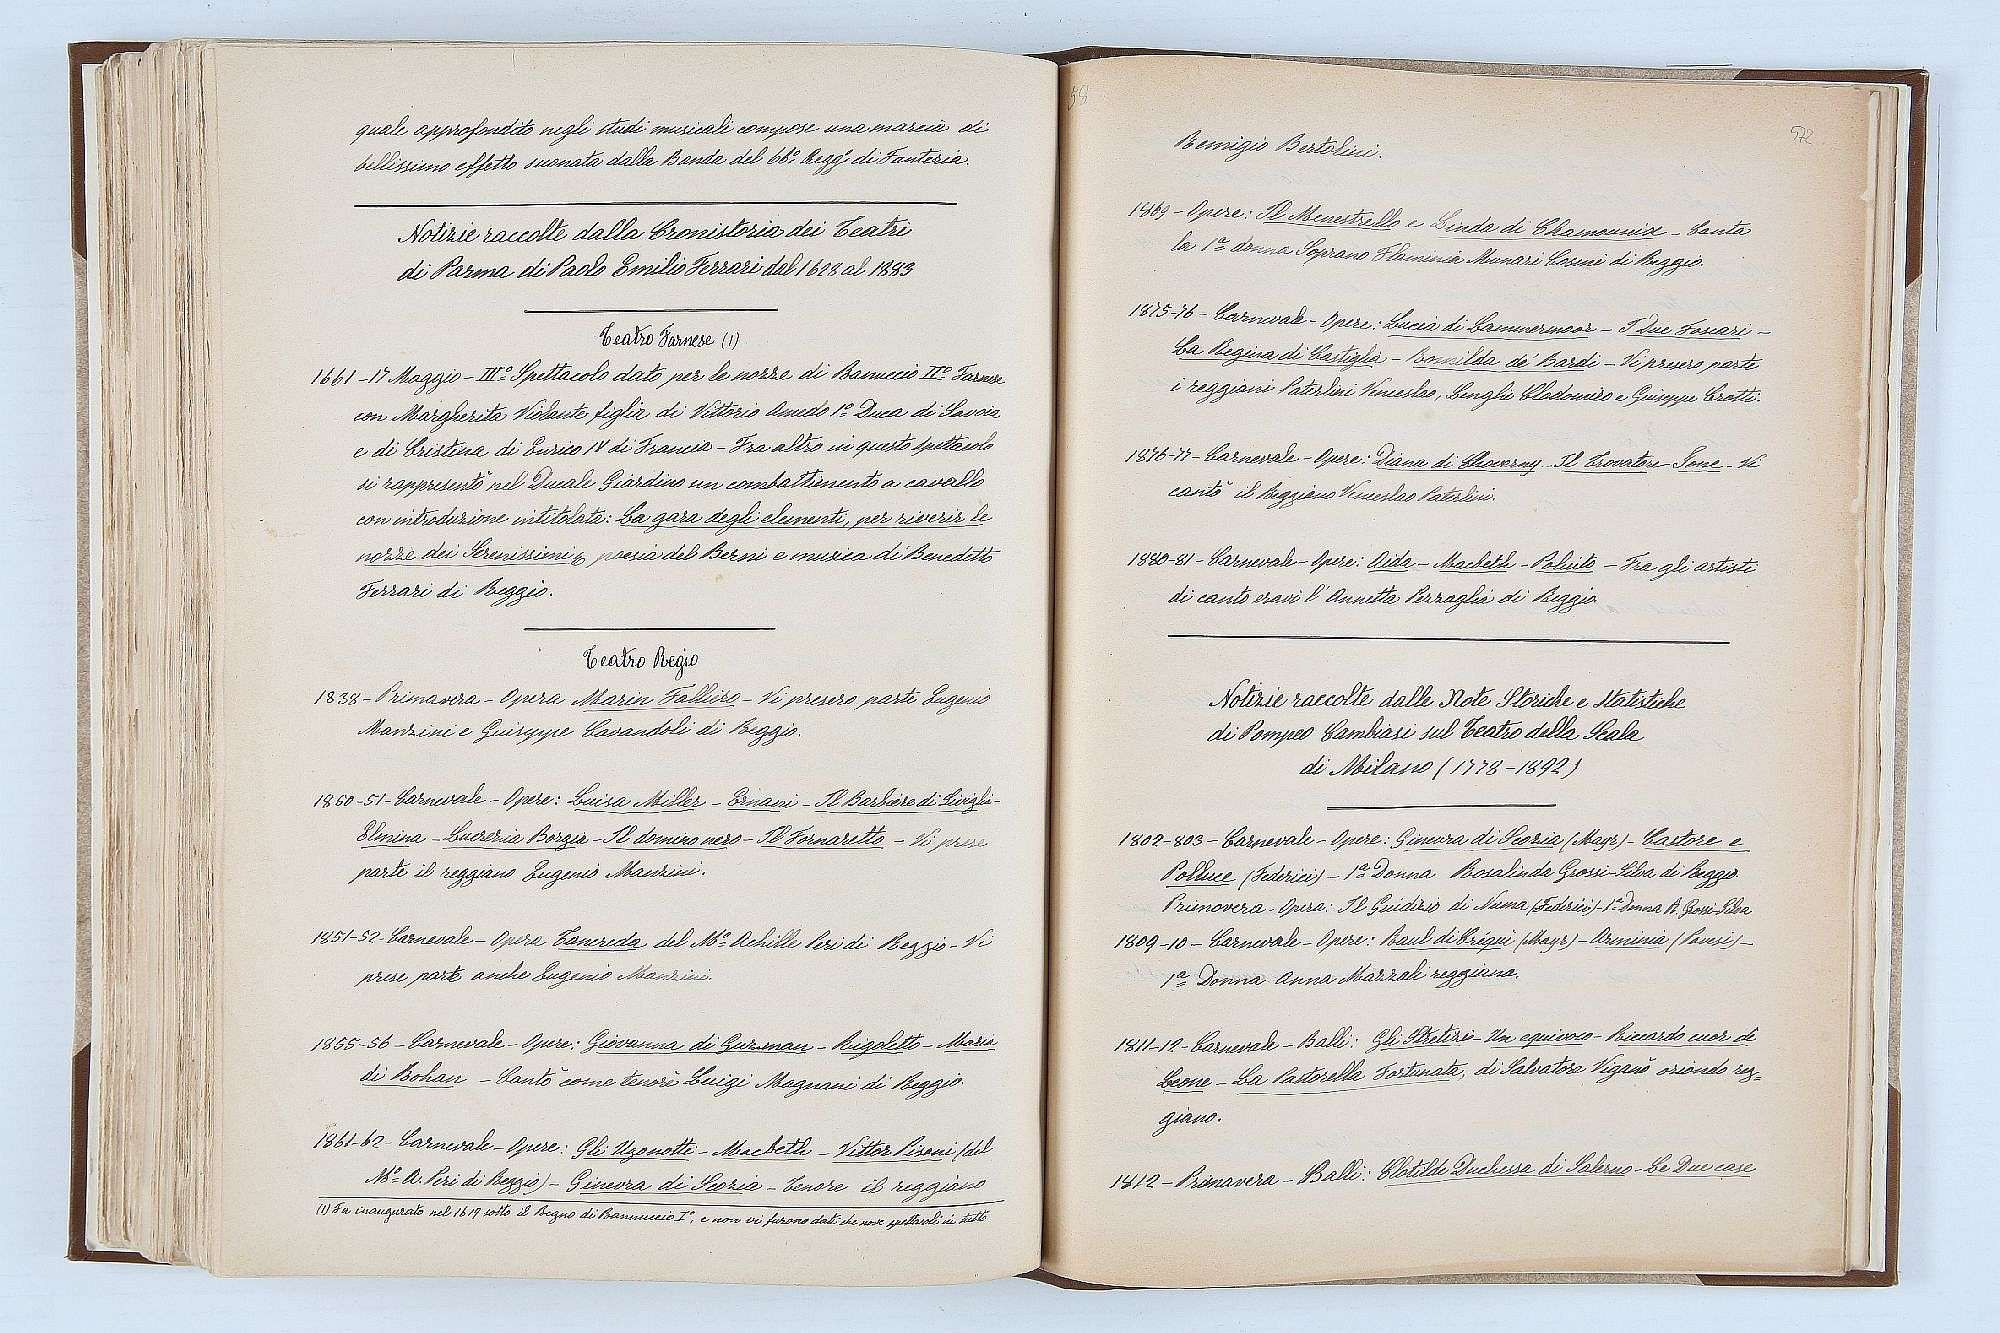 quale approfondito negli studi musicali compose una marcia di
bellissimo effetto suonata dalla Banda del 66º Reggº di Fanteria.
Notizie raccolte dalla Cronistoria dei Teatri
di Parma di Paolo Emilio Ferrari dal 1628 al 1883
Teatro Farnese (1)
1661 - 17 Maggio - IIIº Spettacolo dato per le nozze di Ranuccio IIº Farnese
con Margherita Violante figlia di Vittorio Amedo 1º Duca di Savoia
e di Cristina di Enrico IV di Francia - Fra altro in questo spettacolo
si rappresentò nel Ducale Giardino un combattimento a cavallo
con introduzione intitolata: La gara degli elementi, per riverir le
nozze dei Serenissimi &, poesia del Berni e musica di Benedetto
Ferrari di Reggio.
Teatro Regio
1838 - Primavera - Opera Marin Falliero - Vi presero parte Eugenio
Manzini e Guiseppe Cavandoli di Reggio.
1850-51 - Carnevale - Opere: Luisa Miller - Ernani - Il Barbiere di Siviglia -
Elmina - Lucrezia Borgia - Il domino nero - Il Fornaretto - Vi prese
parte il reggiano Eugenio Manzini.
1851-52 - Carnevale - Opera Tancreda del Mº Achille Peri di Reggio - Vi
prese parte anche Eugenio Manzini.
1855-56 - Carnevale - Opere: Giovanna di Guzman - Rigoletto - Maria
di Rohan - Cantò come tenore Luigi Magnani di Reggio
1861-62 - Carnevale - Opere: Gli Ugonotti - Macbeth - Vittor Pisani (del
Mº A. Peri di Reggio) - Ginevra di Scozia - Tenore il reggiano
(1) Fu inaugurato nel 1619 sotto il Regno di Rannuccio Iº, e non vi furono dati che nove spettacoli in tutto
58
572
Remigio Bertolini.
1869 - Opere: Il Menestrello e Linda di Chamounix - Canta
la 1ª donna Soprano Flaminia Munari Cosini di Reggio.
1875-76 - Carnevale - Opere: Lucia di Lammermoor - I Due Foscari -
La Regina di Castiglia - Bonnilda de' Bardi - Vi presero parte
i reggiani Paterlini Venceslao, Lenghi Clodomiro e Guiseppe Crotti.
1876-77 - Carnevale - Opere: Diana di Chaverny - Il Trovatore - Jone - Vi
cantò il Reggiano Venceslao Paterlini.
1880-81 - Carnevale - Opere: Aida - Macbeth - Poliuto - Fra gli artisti
di canto eravi l'Annetta Pezzaglia di Reggio
Notizie raccolte dalle Note Storiche e Statistiche
di Pompeo Cambiasi sul Teatro della Scala
di Milano (1778-1892)
1802-803 - Carnevale - Opere: Ginevra di Scozia (Mayr) - Castore e
Polluce (Federici) - 1ª Donna Rosalinda Grossi-Silva di Reggio
Primavera - Opera: Il Guidizio di Numa (Federici) - 1ª Donna R. Grossi-Silva
1809-10 - Carnevale - Opere: Raul di Créqui (Mayr) - Arminia (Pavesi) -
1ª Donna Anna Mazzali reggiana.
1811-12 - Carnevale - Balli: Gli Strelizi - Un equivoco - Riccardo cuor di
Leone - La Pastorella Fortunata, di Salvatore Viganò oriondo reg=
giano.
1812 - Primavera - Balli: Clotilde Duchessa di Salerno - Le Due case